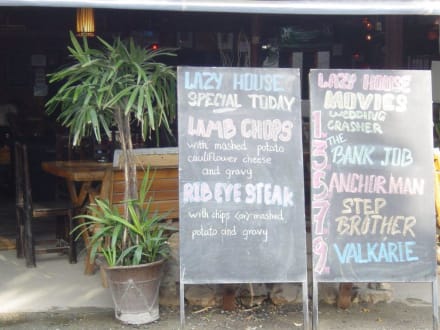 LAZY HOUSE
SPECIAL TODAY
LAMB CHOPS
with mashed potato
cauliflower cheese
and gravy
RIB EYE STEAK
with chips (or) mashed
potato and gravy
LAZY HOUSE
MOVIES
1 WEDDING
CRASHER
3 THE
BANK JOB
5 ANCHOR MAN
7 STEP
BROTHER
9 VALKARIE